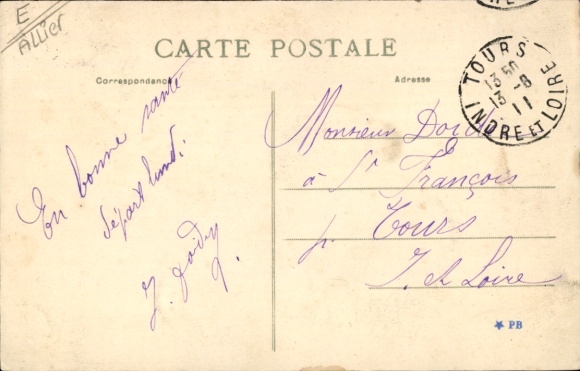 E
Allier
CARTE POSTALE
Correspondance
Adresse
TOURS
13 50
13 -8
11
INDRE ET LOIRE
En bonne santé
départ lundi.
J. Doidy
Monsieur
à St François
p. Tours
I. et Loire
PB